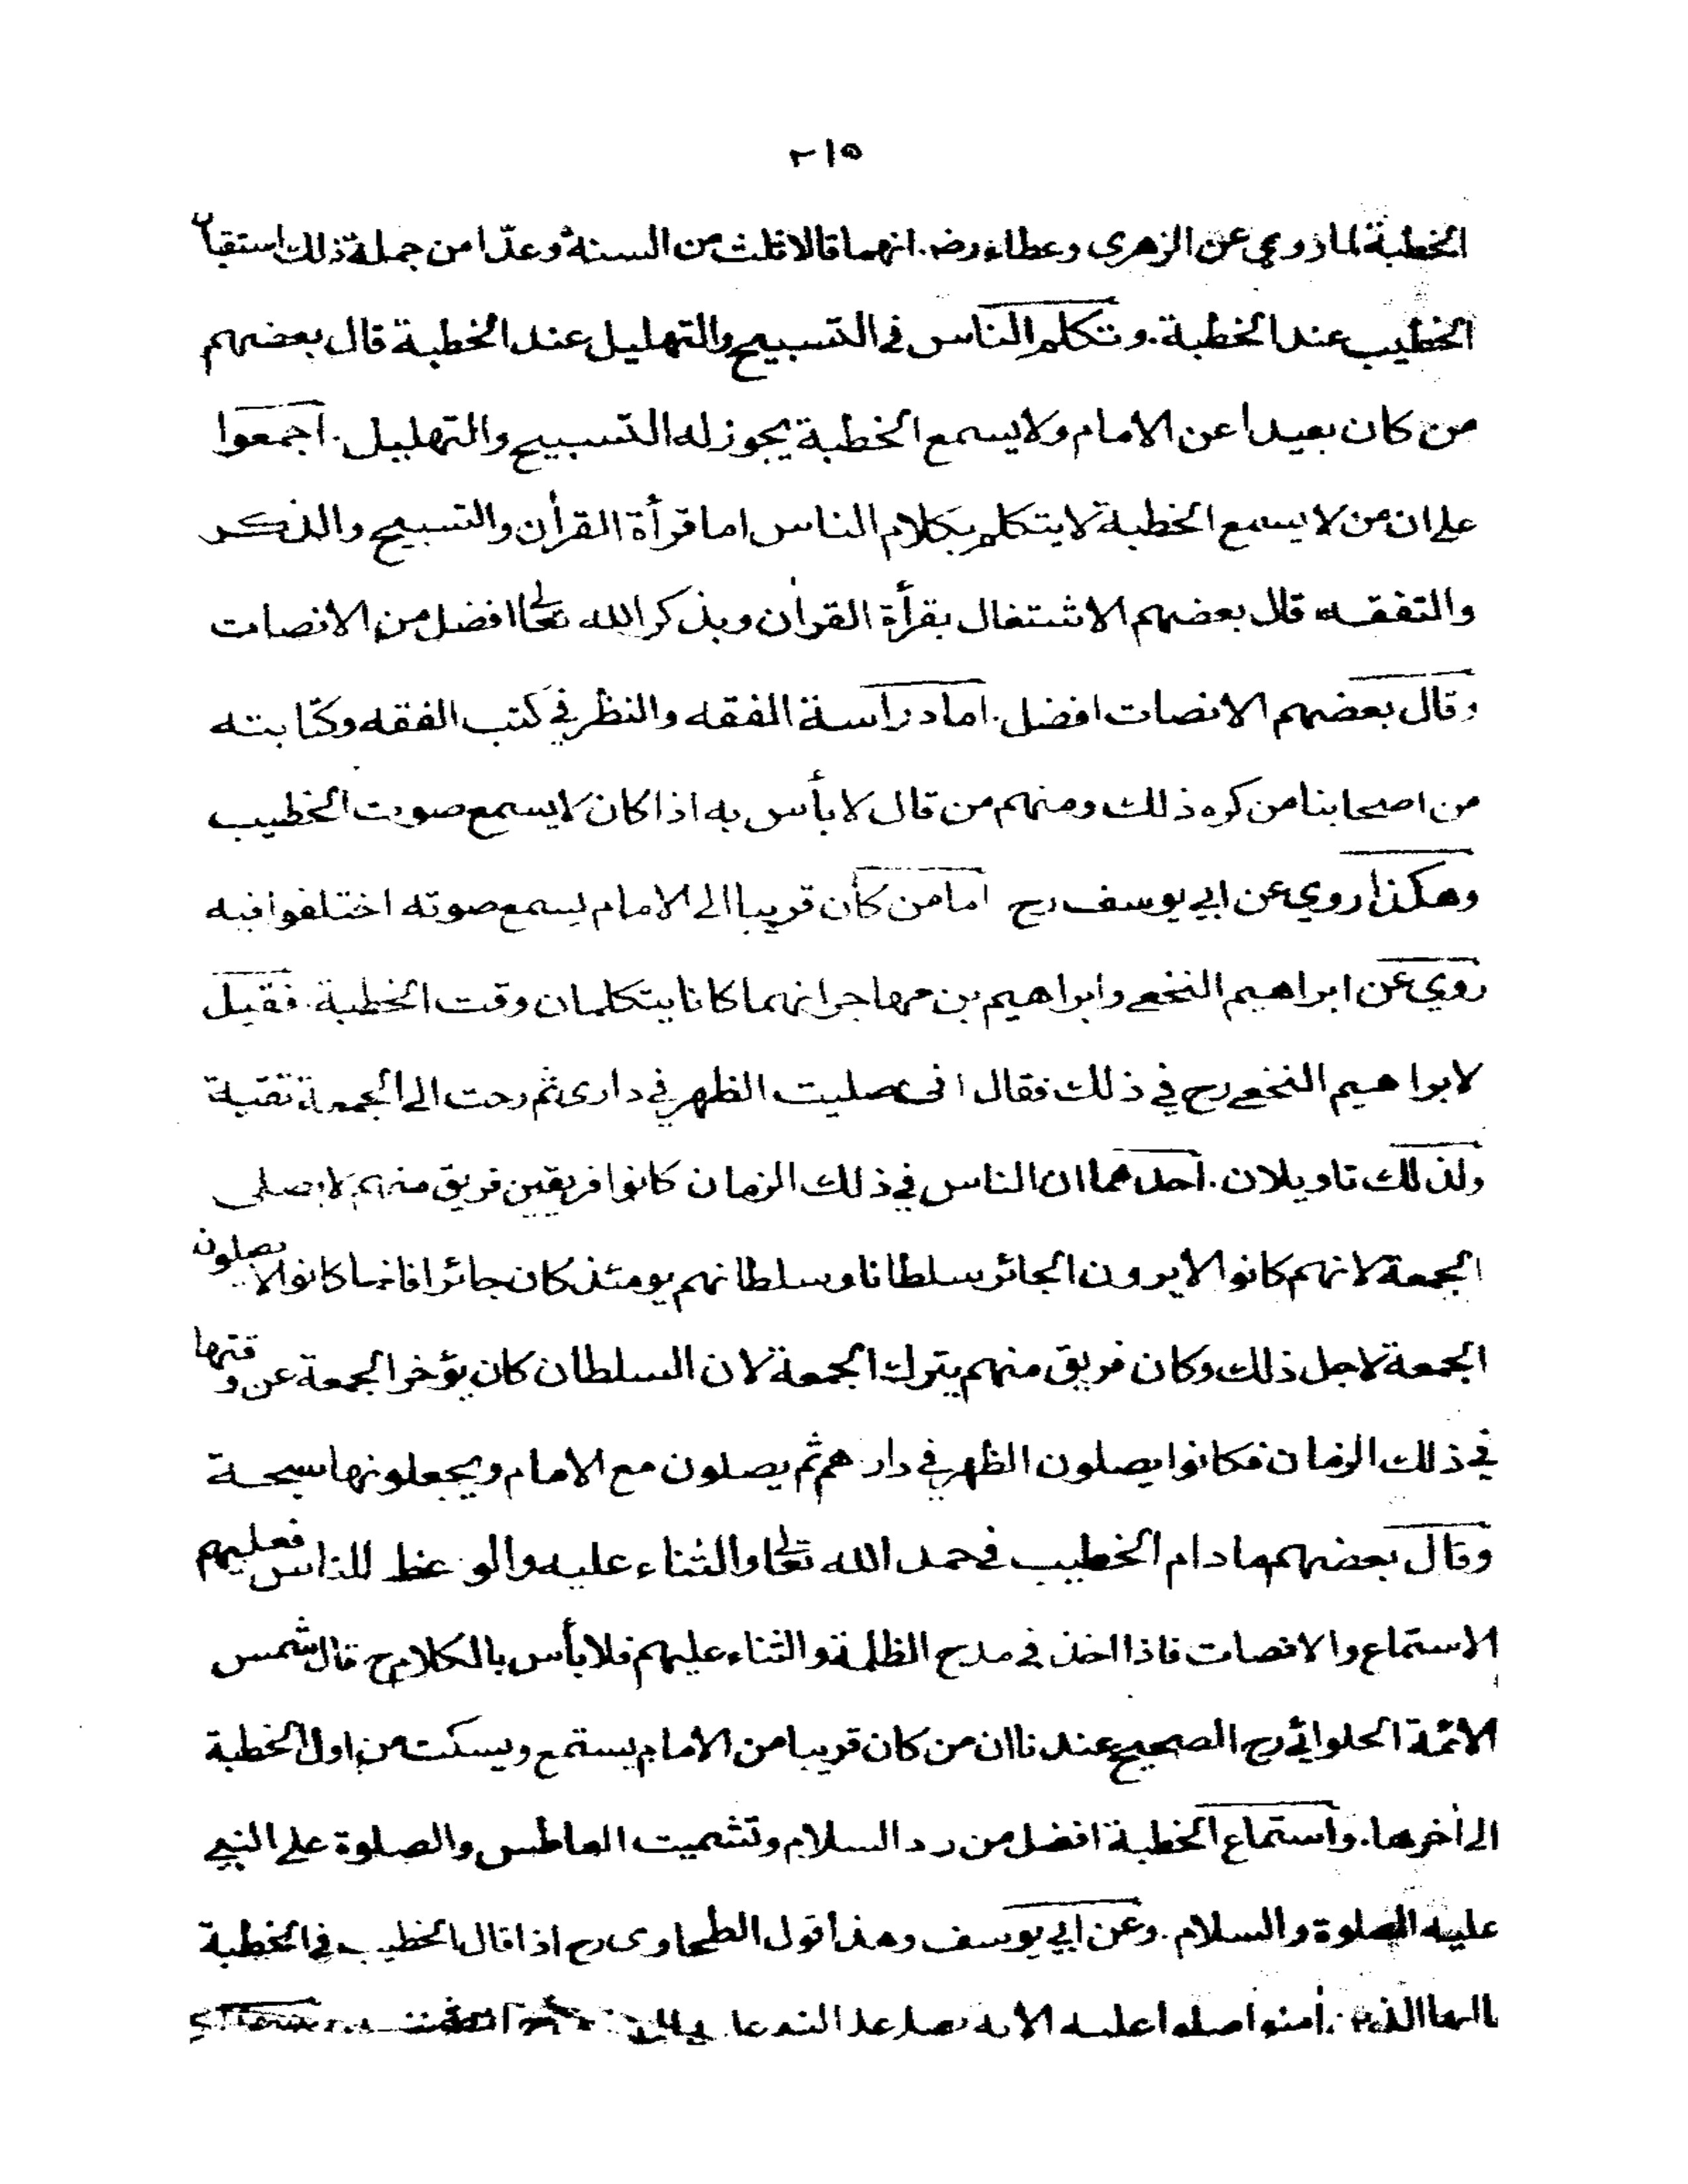 ٢١٥
الخطبة لما روي عن الزهرى وعطاء رضـ. انهما قالا ثلث من السنة وعدّا من جملة ذلك استقبال
الخطيب عند الخطبة. وتكلم الناس في التسبيح والتهليل عند الخطبة قال بعضهم
من كان بعيدا عن الامام ولا يسمع الخطبة يجوز له التسبيح والتهليل. اجمعوا
على ان من لا يسمع الخطبة لا يتكلم بكلام الناس اما قرأة القرأن والتسبيح والذكر
والتفقه قال بعضهم الاشتغال بقرأة القرأن وبذكر الله تعالى افضل من الانصات
وقال بعضهم الانصات افضل. اما دراسة الفقه والنظر في كتب الفقه وكتابته
من اصحابنا من كره ذلك ومنهم من قال لا بأس به اذا كان لا يسمع صوت الخطيب
وهكذا روي عن ابي يوسف رح اما من كان قريبا الى الامام يسمع صوته اختلفوا فيه
روي عن ابراهيم النخعي وابراهيم بن مهاجر انهما كانا يتكلمان وقت الخطبة. فقيل
لابراهيم النخعي رح في ذلك فقال انى صليت الظهر في دارى ثم رحت الى الجمعة تقية
ولذلك تاويلان. احدهما ان الناس في ذلك الزمان كانوا فريقين فريق منهم لا يصلى
الجمعة لانهم كانوا لا يرون الجائر سلطانا وسلطانهم يومئذ كان جائرا فانما كانوا لا يصلون
الجمعة لاجل ذلك وكان فريق منهم يترك الجمعة لان السلطان كان يؤخر الجمعة عن وقتها
في ذلك الزمان فكانوا يصلون الظهر في دارهم ثم يصلون مع الامام ويجعلونها سبحة
وقال بعضهم ما دام الخطيب في حمد الله تعالى والثناء عليه والوعظ للناس فعليهم
الاستماع والانصات فاذا اخذ في مدح الظلمة والثناء عليهم فلا بأس بالكلام ح قال شمس
الائمة الحلوائي رح الصحيح عندنا ان من كان قريبا من الامام يستمع ويسكت من اول الخطبة
الى أخرها. واستماع الخطبة افضل من رد السلام وتشميت العاطس والصلوة على النبي
عليه الصلوة والسلام. وعن ابي يوسف وهذا قول الطحاوى رح اذا قال الخطيب في الخطبة
يا ايها الذين أمنوا صلوا عليه الاية يصلى على النبي